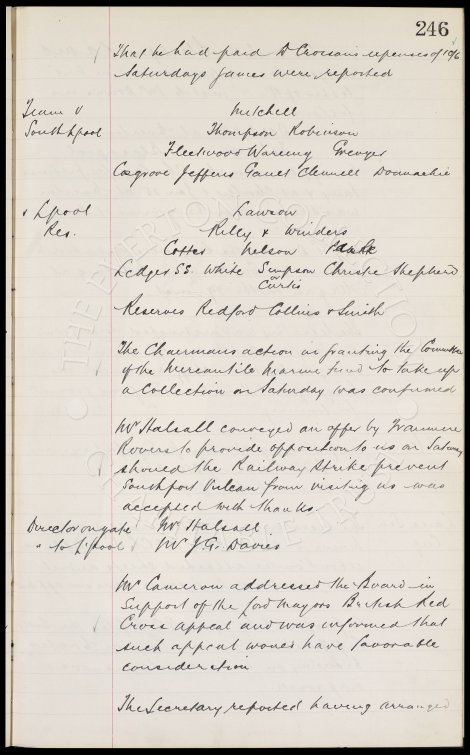 246
That he had paid D Croesans expenses of 10/6
Saturdays games were reported
Team v Mitchell
Southpool Thompson Robinson
Fleetwood Wareing Grenyer
Cosgrove Jefferis Gault Clennell Donnachie
v Lpool Lawson
Res. Riley & Winders
Cotter Nelson
Ledger SS. White Simpson Christie Shepherd
or Curtis
Reserves Redford Collins & Smith
The Chairmans action in granting the Committee
of the Mercantile Marine fund to take up
a Collection on Saturday was confirmed
Mr Halsall conveyed an offer by Tranmere
Rovers to provide opposition to us on Saturday
should the Railway Strike prevent
Southport Vulcan from visiting us was
accepted with thanks.
Director on gate Mr Halsall
" to L'pool Mr J.G. Davies
Mr Cameron addressed the Board in
Support of the Lord Mayors British Red
Cross appeal and was informed that
such appeal would have favorable
consideration
The Secretary reported having arranged